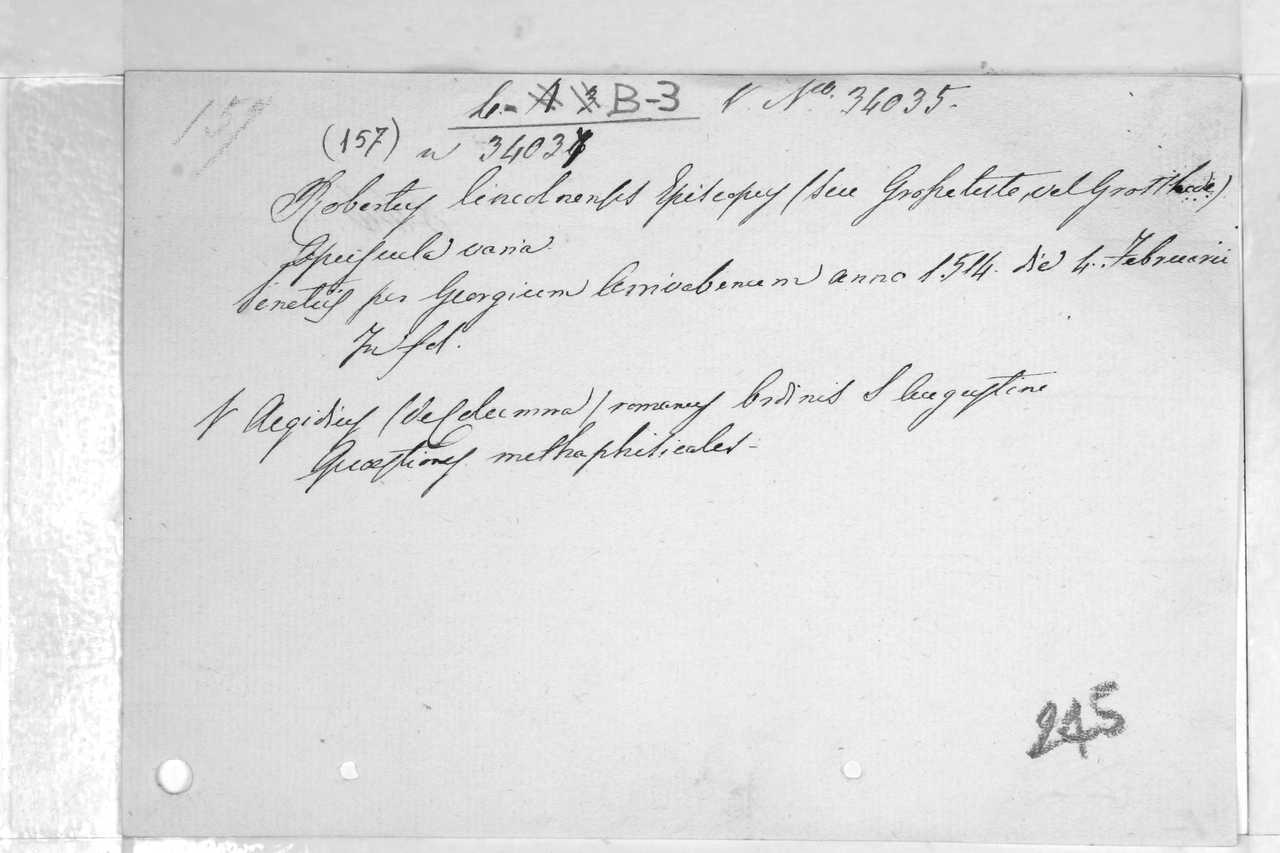 157
C- B-3 V. No. 34035.
(157) n 34034
Robertus lincolnensis Episcopus (seu Grossetesto, vel Grosthede)
Opuscula varia
Venetiis per Georgium Arrivabenum anno 1514. die 4. Februarii
In fol.
V Aegidius (de Columna) romanus Ordinis S Augustini
Quæstiones methaphisicales-
245